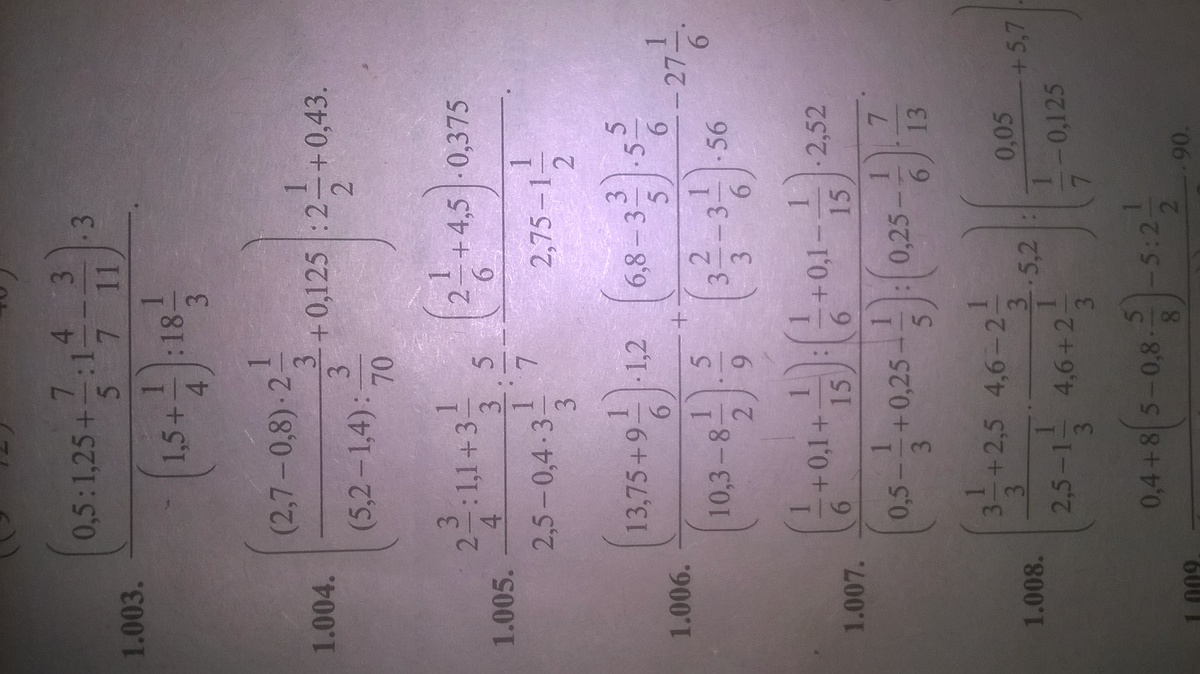 1.003. ((0,5 : 1,25 + 7/5 : 1 4/7 − 3/11) · 3) / ((1,5 + 1/4) : 18 1/3).
1.004. ((2,7 − 0,8) · 2 1/3 / ((5,2 − 1,4) : 3/70) + 0,125) : 2 1/2 + 0,43.
1.005. (2 3/4 : 1,1 + 3 1/3) / (2,5 − 0,4 · 3 1/3) : 5/7 − ((2 1/6 + 4,5) · 0,375) / (2,75 − 1 1/2).
1.006. ((13,75 + 9 1/6) · 1,2) / ((10,3 − 8 1/2) · 5/9) + ((6,8 − 3 3/5) · 5 5/6) / ((3 2/3 − 3 1/6) · 56) − 27 1/6.
1.007. ((1/6 + 0,1 + 1/15) : (1/6 + 0,1 − 1/15) · 2,52) / ((0,5 − 1/3 + 0,25 − 1/5) : (0,25 − 1/6) · 7/13).
1.008. ((3 1/3 + 2,5) / (2,5 − 1 1/3) · (4,6 − 2 1/3) / (4,6 + 2 1/3) · 5,2) : (0,05 / (1/7 − 0,125) + 5,7)
1.009 0,4 + 8(5 − 0,8 · 5/8) − 5 : 2 1/2 · 90